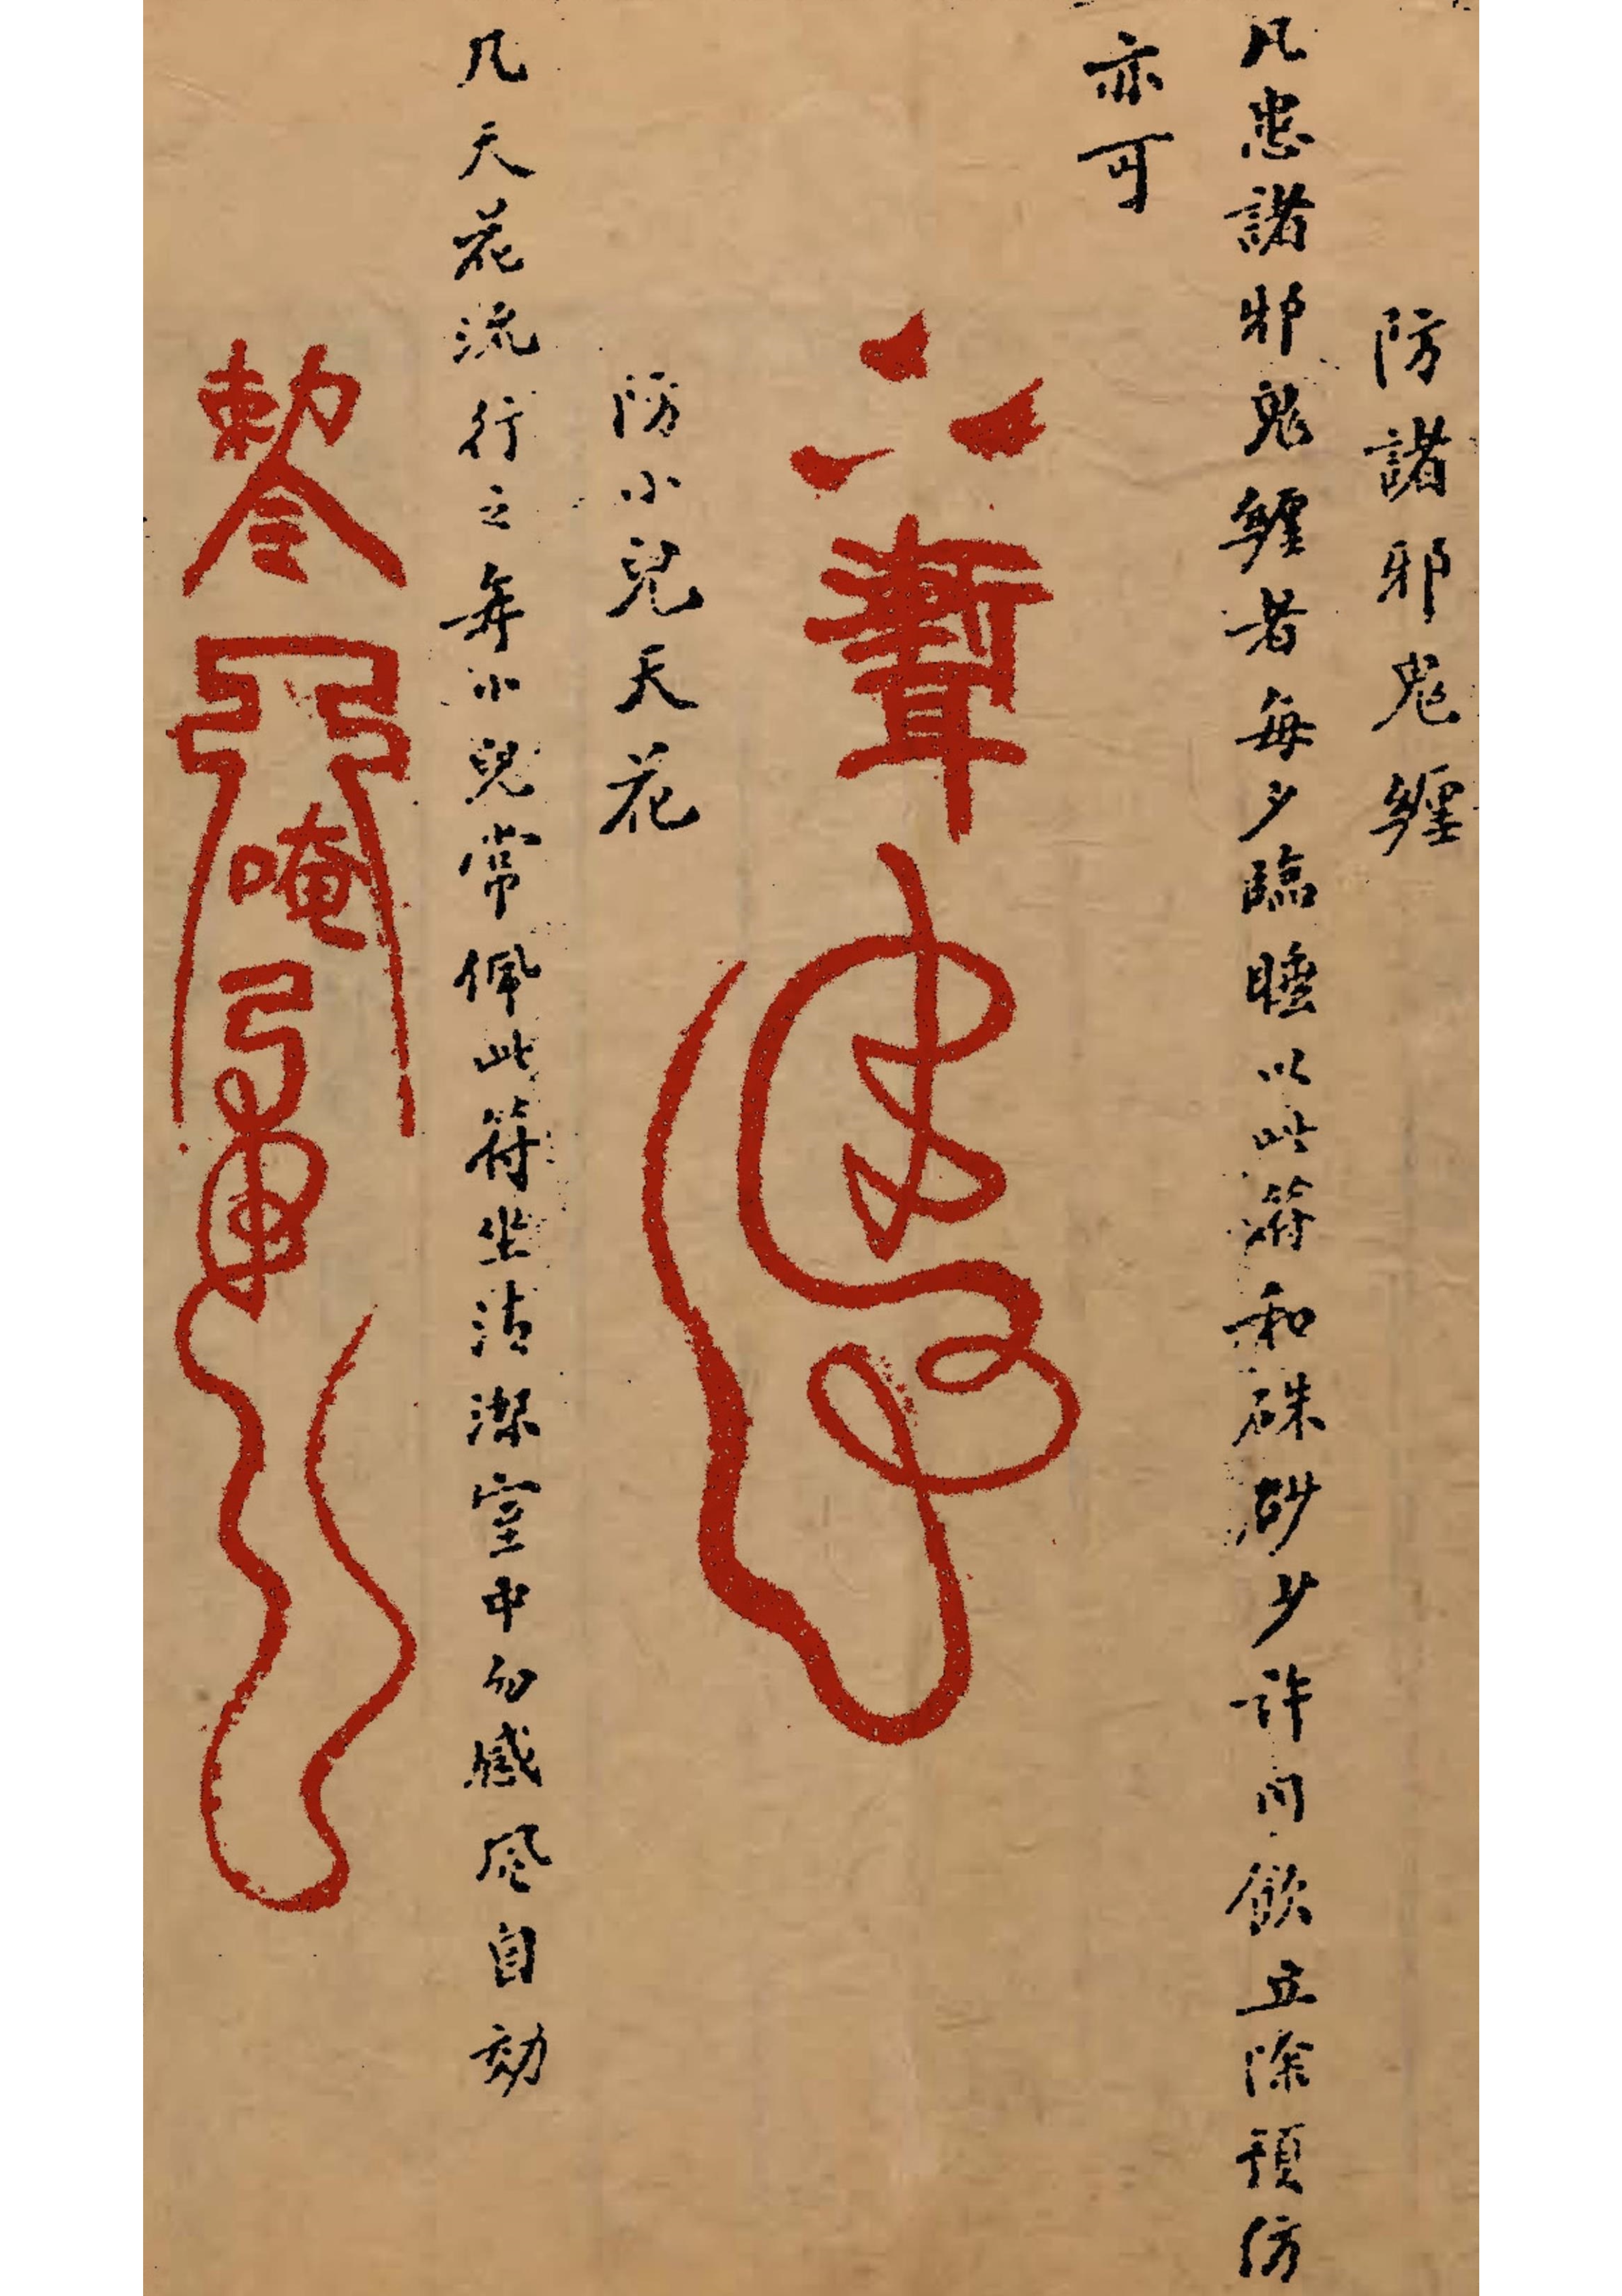 防諸邪鬼纏
凡患諸邪鬼纏者每夕臨睡以此符和硃砂少許同飲立除預防
亦可
聻
防小兒天花
凡天花流行之年小兒常佩此符坐清潔室中勿感風自効
勅令
唵